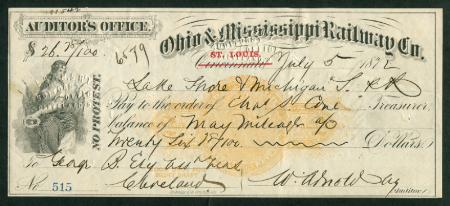 AUDITOR'S OFFICE,
Ohio & Mississippi Railway Co.
$ 26 78/100
6579
ST. LOUIS, July 5 1872
Lake Shore & Michigan S. R R
Pay to the order of Chas. St. Cone Treasurer,
balance of May Mileage a/c
Twenty Six 78/100 Dollars
NO PROTEST.
To Geo B. Ely Asst Treas
No. 515
Cleveland
W. Arnold
Auditor